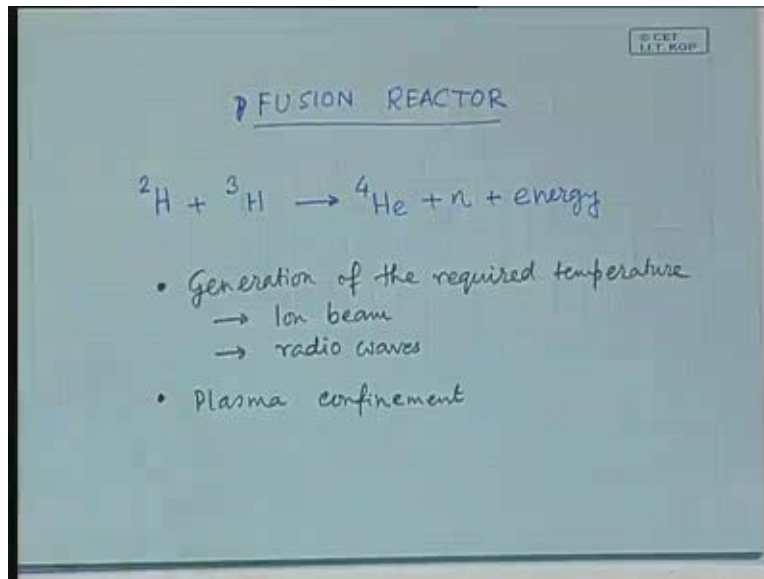 © CET
I.I.T. KGP
FUSION REACTOR
²H + ³H → ⁴He + n + energy
• Generation of the required temperature
→ Ion beam
→ radio waves
• Plasma confinement